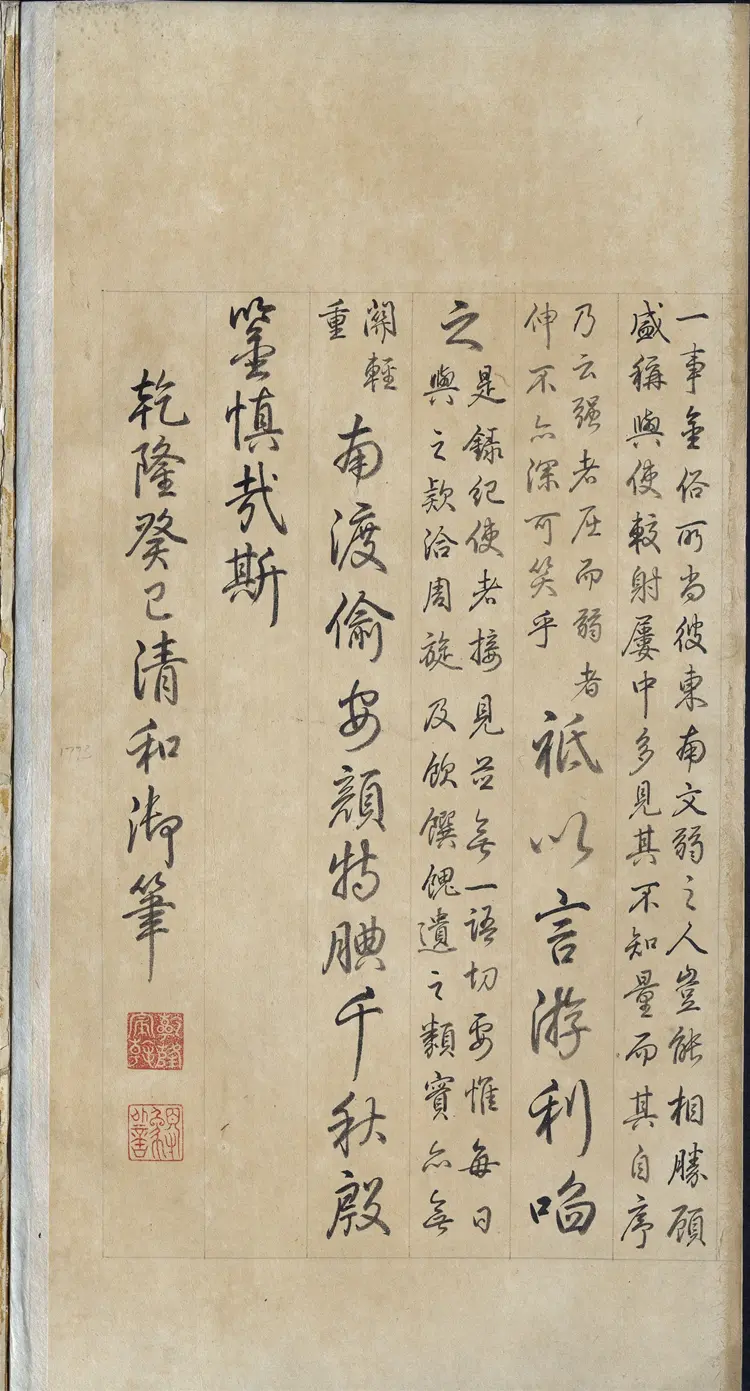 一事金俗所尚彼東南文弱之人豈能相勝顧
盛稱與使較射屢中多見其不知量而其自序
乃云强者屈而弱者
伸不亦深可笑乎
祗以言游利啗
之
是錄紀使者接見並無一語切要惟每日
與之欵洽周旋及飲饌餽遺之類實亦無
關輕
重
南渡偷安顏特腆千秋殷
鑒慎哉斯
乾隆癸巳清和御筆
乾隆
宸翰